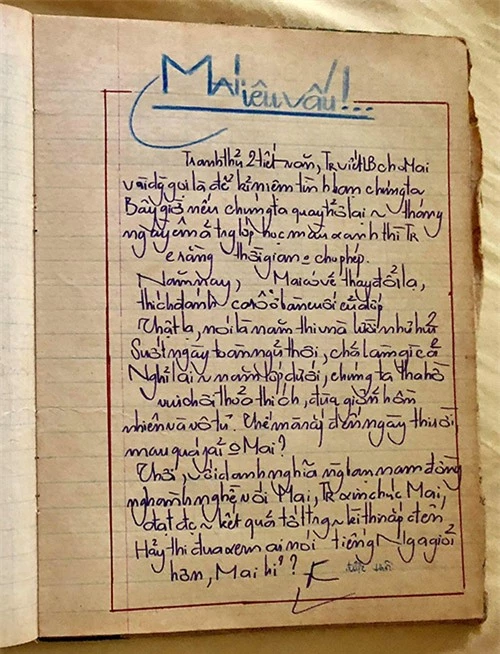 Mai iêu vấu!...
Tranh thủ 2 tiết văn, Tr viết LB cho Mai
vài dg gọi là để kỉ niệm tình bạn chúng ta
Bây giờ nếu chúng ta quay trở lại ~ tháng
ngày êm ả trg lớp học màu xanh thì Tr
e rằng thời gian o cho phép.
Năm nay, Mai có vẻ thay đổi lạ,
thích đánh cờ ở bàn cuối của lớp
Thật là, nói là năm thi mà lười như hủi
Suốt ngày toàn ngủ thôi, chả làm gì cả
Nghĩ lại ~ năm lớp dưới, chúng ta tha hồ
vui chơi thỏa thích, đùa giỡn hồn
nhiên và vô tư. Thế mà nay đến ngày thi rồi
mau quá phải o Mai?
Thôi, với danh nghĩa ng bạn nam đồng
ngành nghề với Mai, Tr xin chúc Mai,
đạt đc ~ kết quả tốt trg ~ kì thi sắp đến.
Hãy thi đua xem ai nói tiếng Nga giỏi
hơn, Mai hỉ?